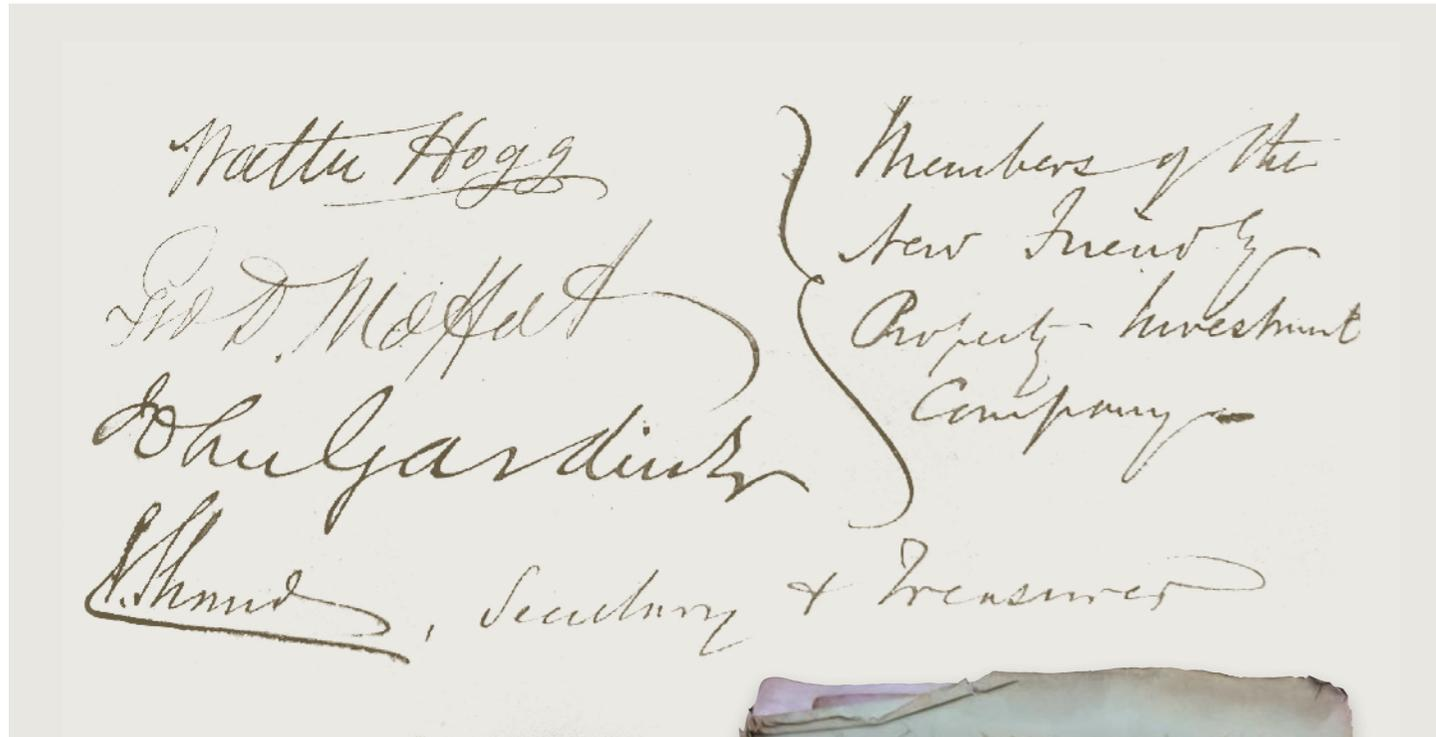 Walter Hogg
Jno D. Moffat
John
Members of the
New Friendly
Property Investment
Company
, Secretary & Treasurer